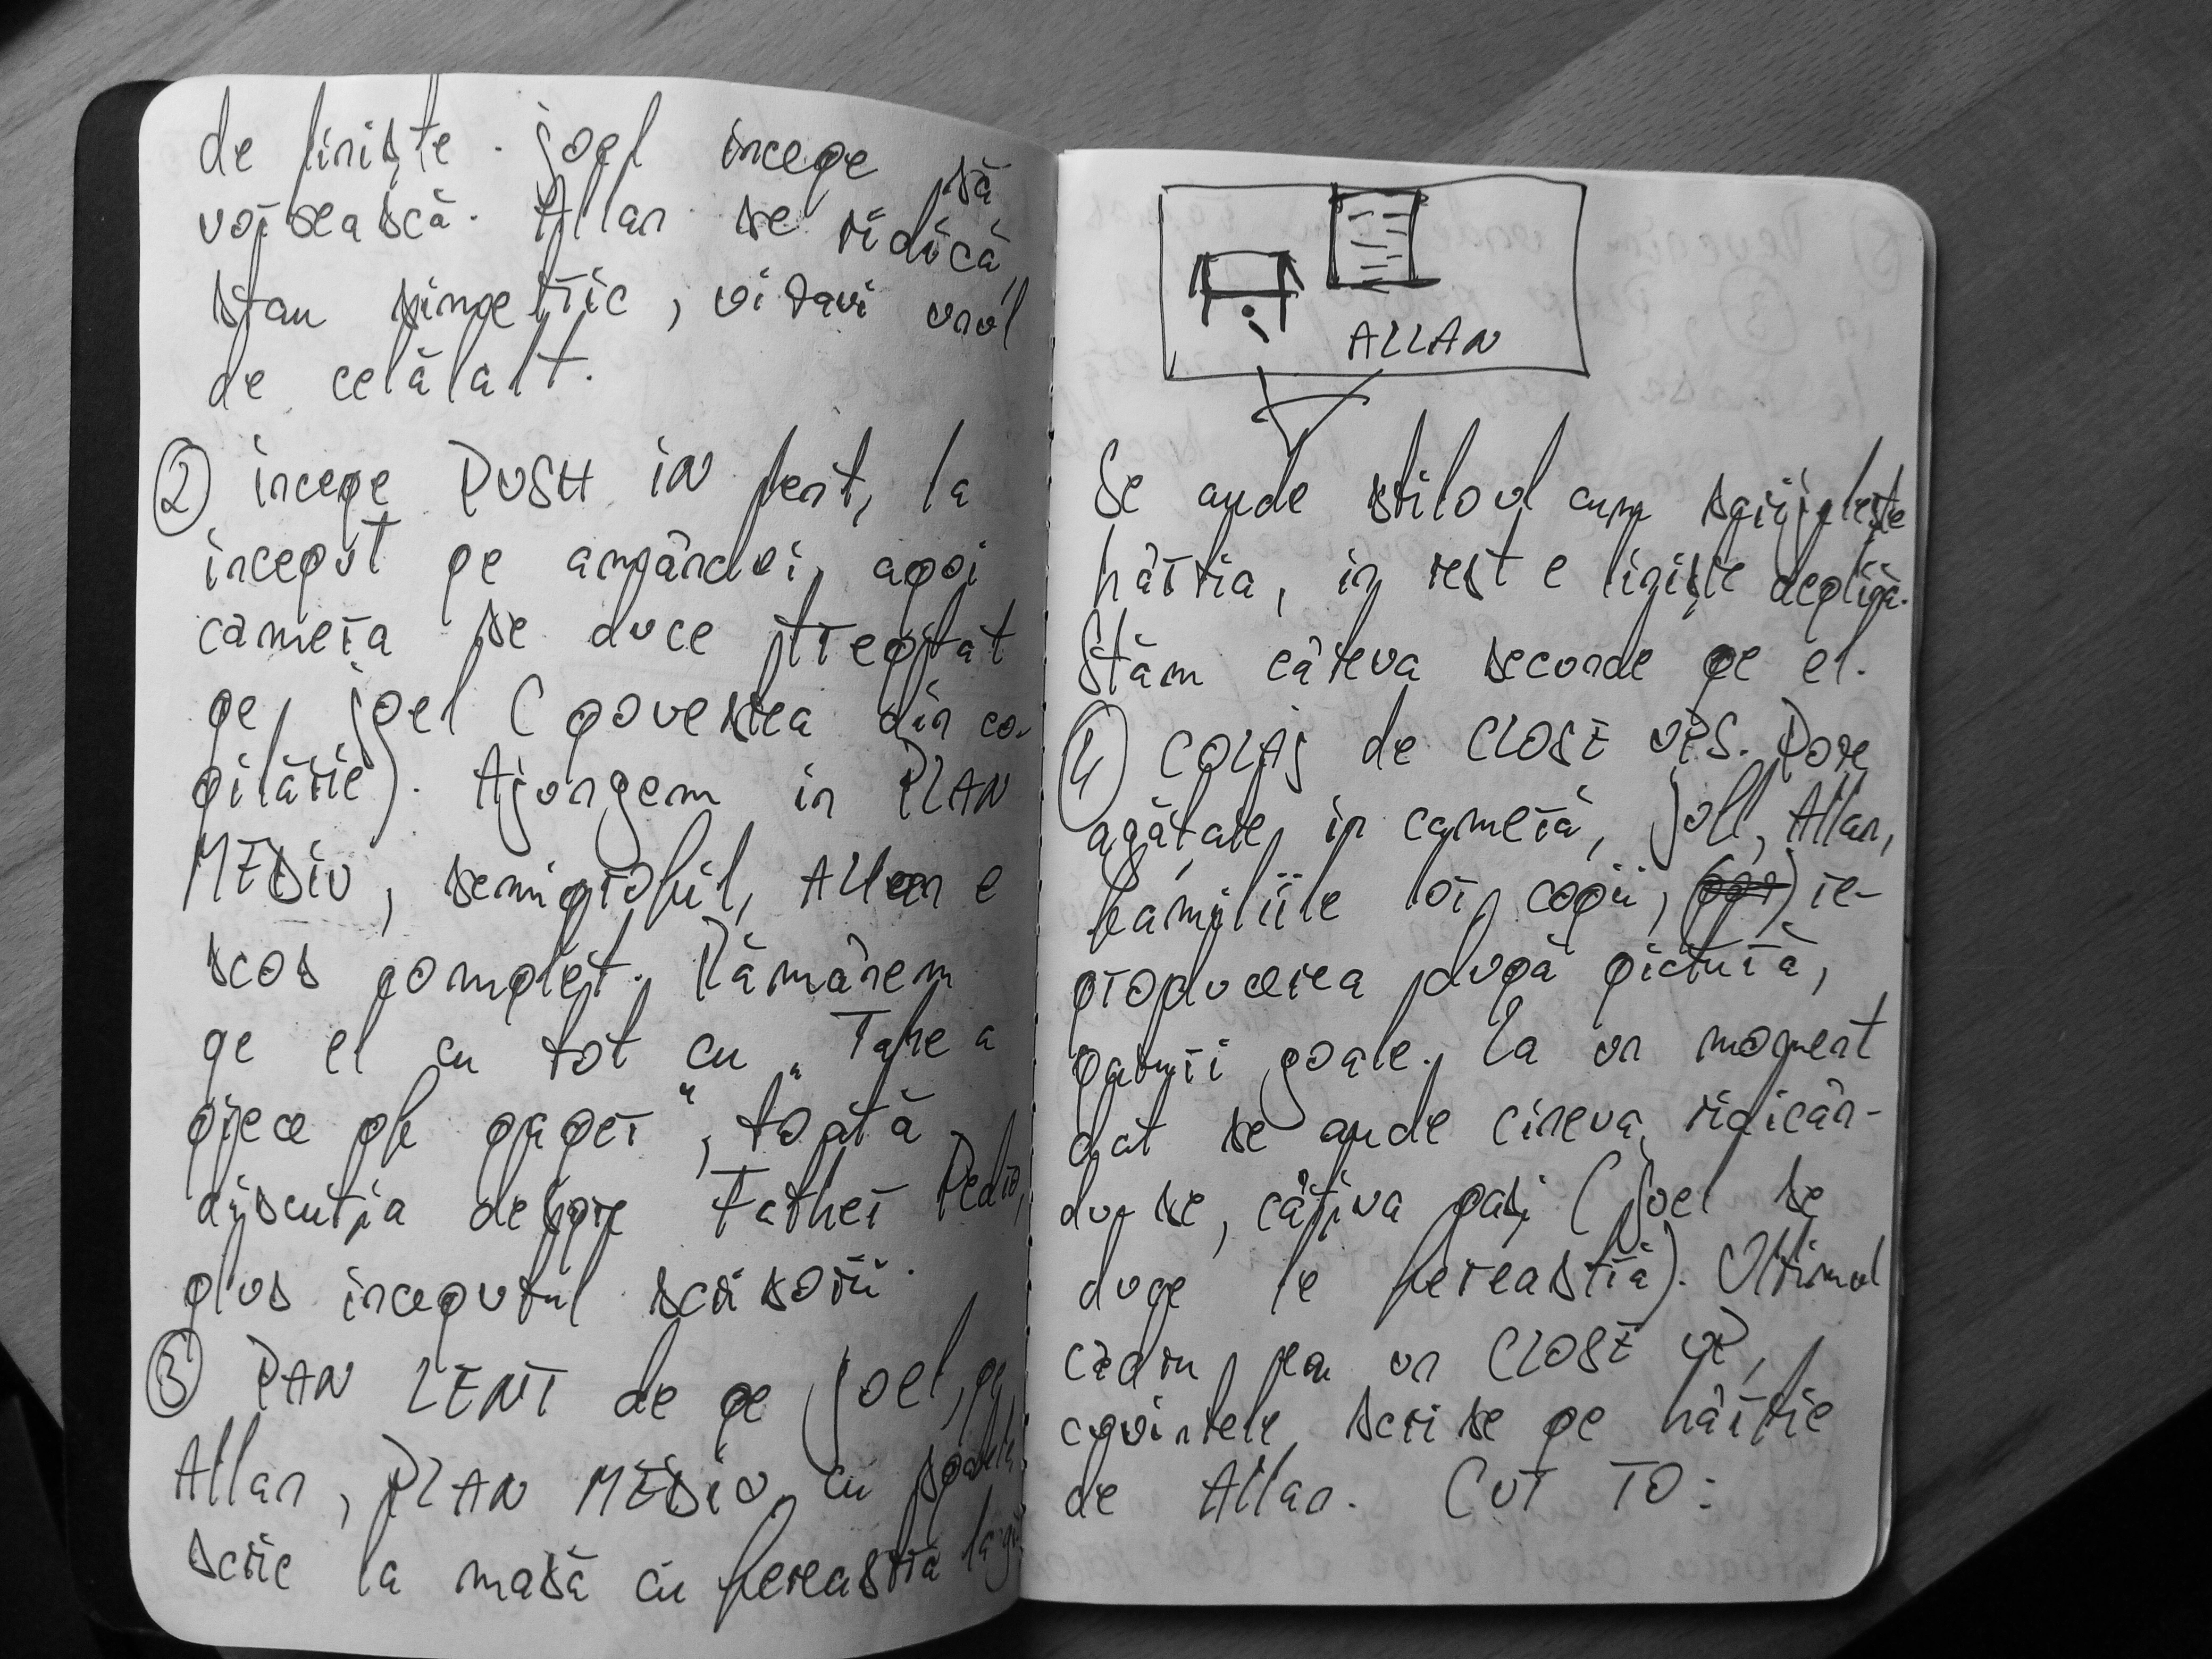 de liniște. Joel începe să
vorbească. Allan se ridică,
stau simetric, vizavi unul
de celălalt.
② începe PUSH IN lent, la
început pe amândoi, apoi
camera se duce treptat
pe Joel (povestea din co-
pilărie). Ajungem în PLAN
MEDIU, semiprofil, Allan e
scos complet. Rămânem
pe el cu tot cu "Take a
piece of paper", toată
discuția despre Father Pedro,
plus începutul scrisorii.
③ PAN LENT de pe Joel, pe
Allan, PLAN MEDIU cu spatele,
scrie la masă cu fereastra
ALLAN
Se aude stiloul cum zgrijilește
hârtia, în rest e liniște deplină.
Stăm câteva secunde pe el.
④ COLAJ de CLOSE UPS. Poze
agățate în cameră, Joel, Allan,
familiile lor, copii, re-
producerea după pictură,
paturi goale. La un moment
dat se aude cineva ridicân-
du-se, câțiva pași (Joel se
duce le fereastră). Ultimul
cadru, pen un CLOSE UP,
cuvintele scrise pe hârtie
de Allan. CUT TO: